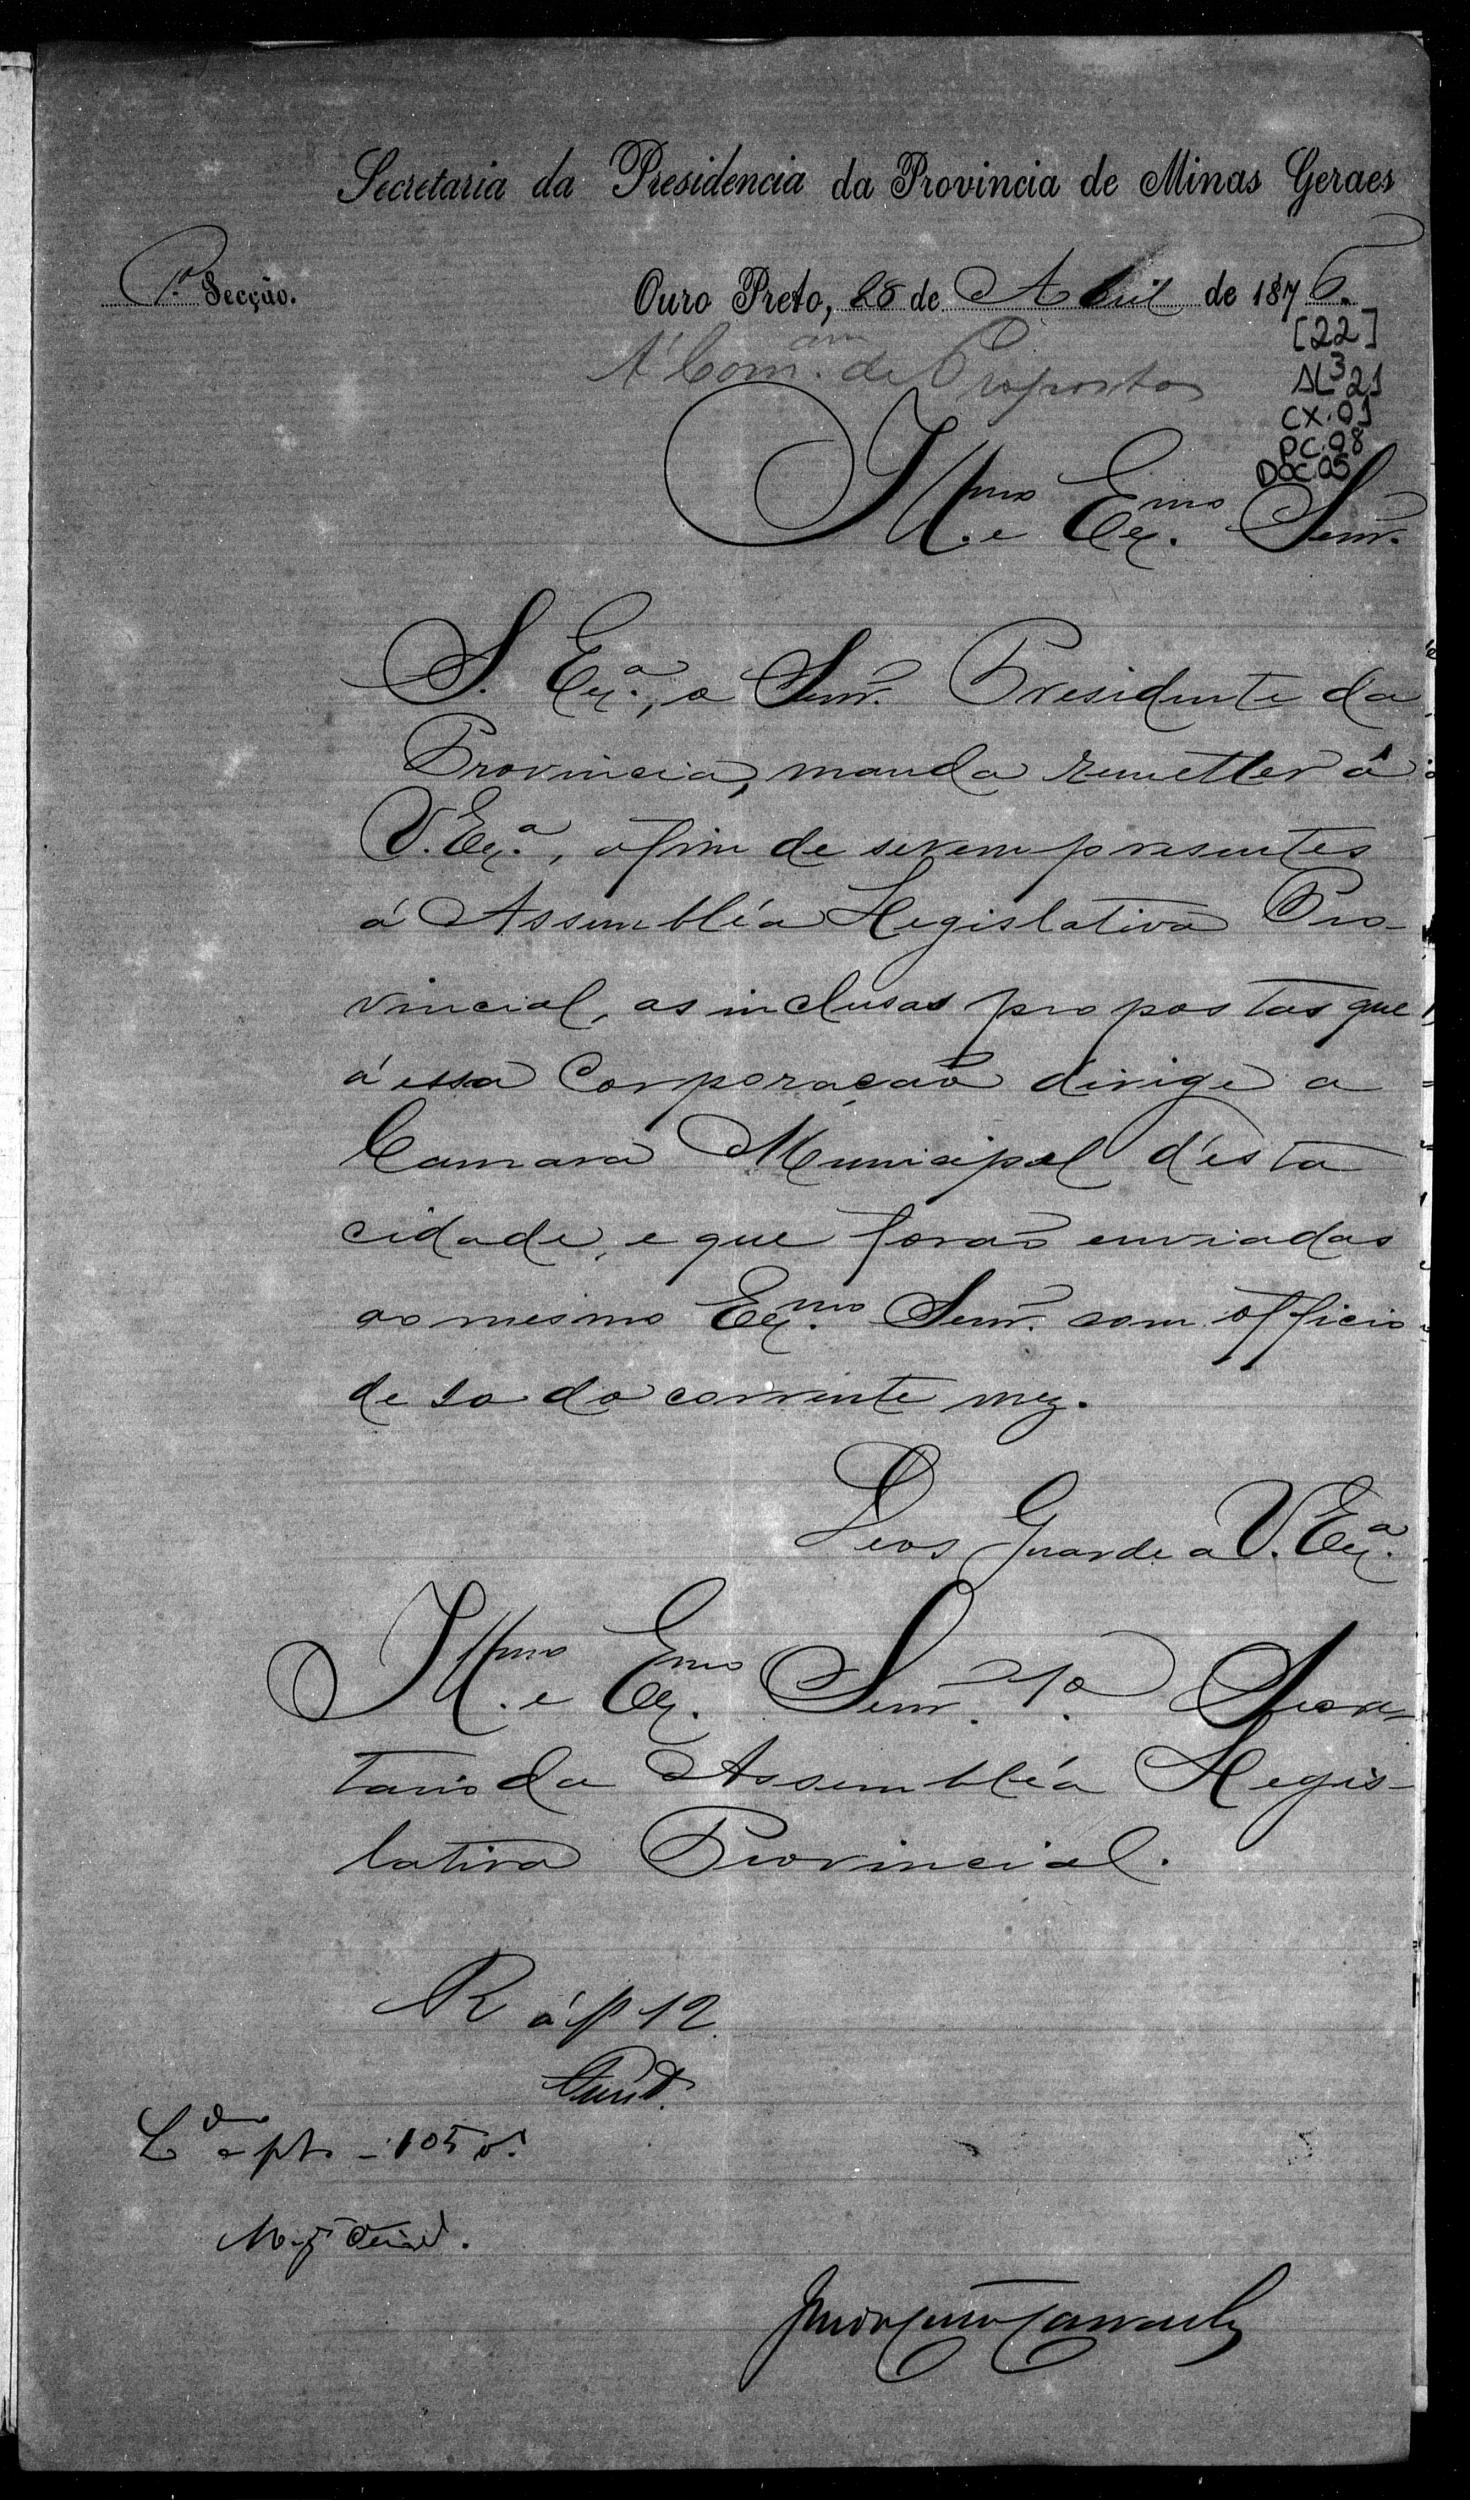 Secretaria da Presidencia da Provincia de Minas Geraes
1.ª Secção.
Ouro Preto, 28 de Abril de 1876.
[22]
AL³ 21
CX.01
PC.08
DOC.05
Á Com.am de Propostas
Ill.mo e Ex.mo Senr.
S. Ex.ª, o Senr. Presidente da
Provincia, manda remetter á
V. Ex.ª, afim de serem presentes
á Assembléa Legislativa Pro-
vincial, as inclusas propostas que
á essa Corporação dirige a
Camara Municipal d'esta
cidade, e que forão enviadas
ao mesmo Ex.mo Senr. com officio
de 10 do corrente mez.
Deos Guarde a V. Ex.ª
Ill.mo e Ex.mo Senr. 1.º Secre-
tario da Assembléa Legis-
lativa Provincial.
R á p 12
105 v.